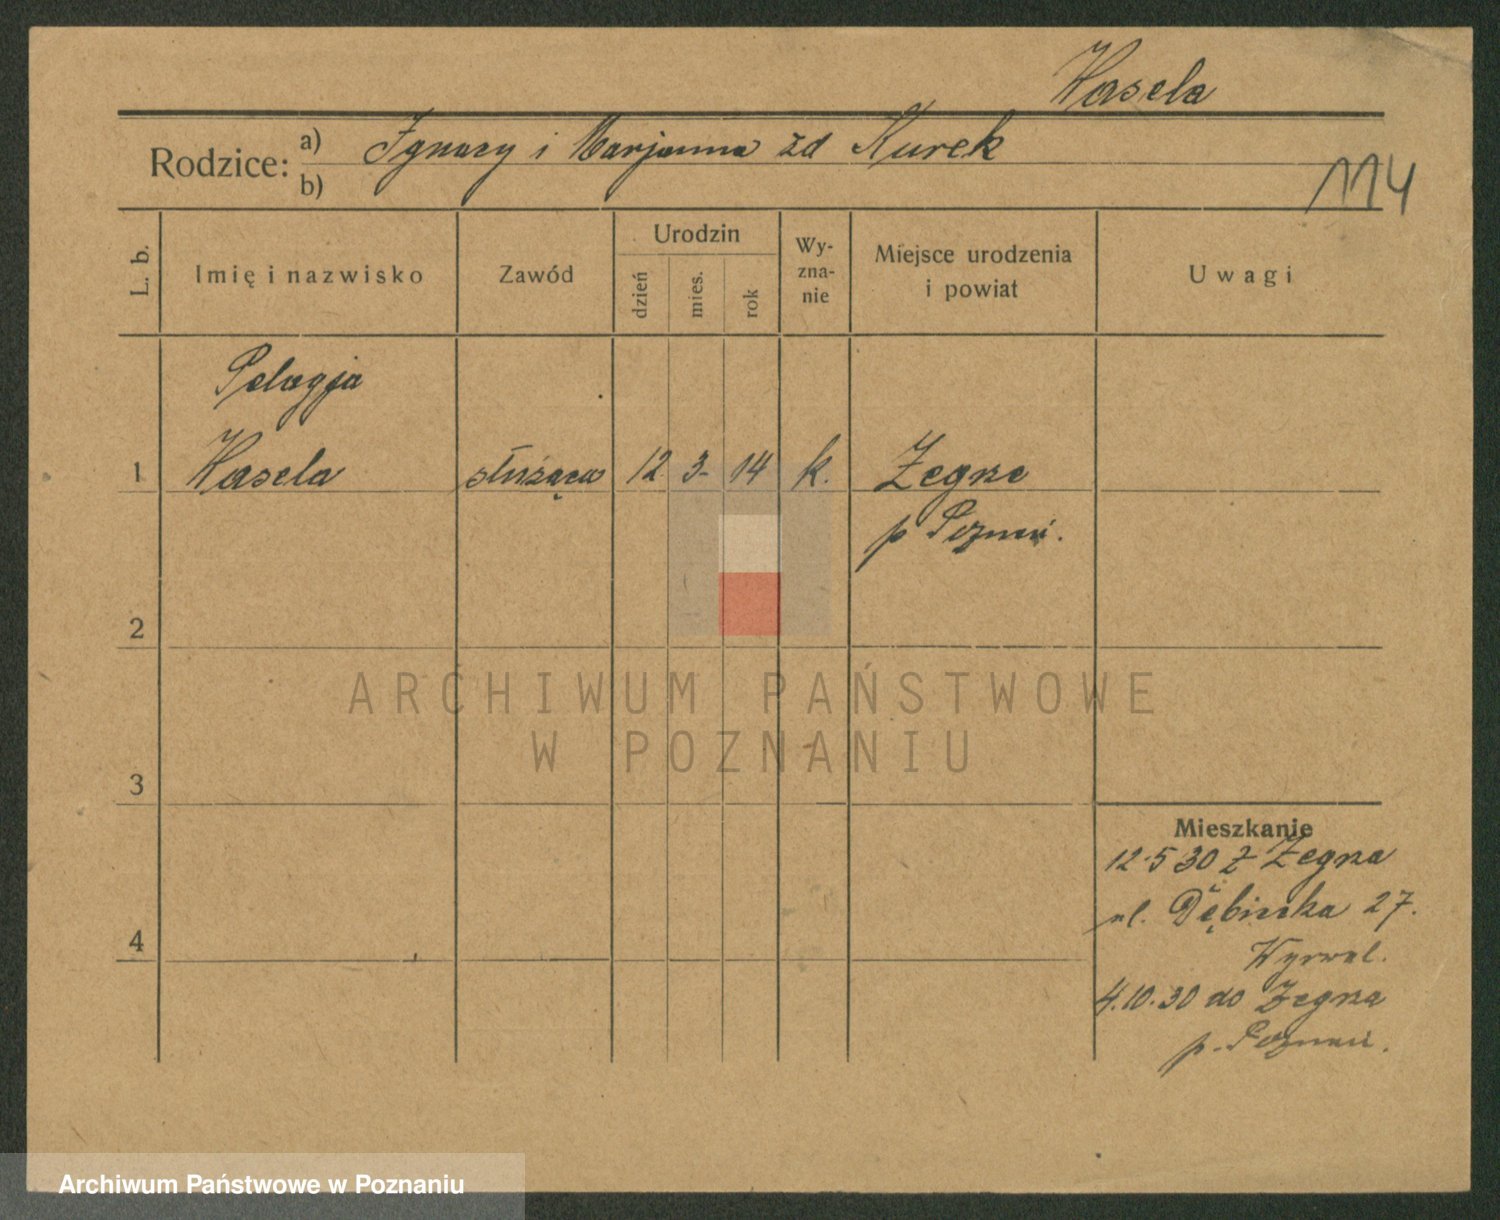 Wasela
Rodzice: a) Ignacy i Marjanna zd Kurek
b)
114
L. b.
Imię i nazwisko
Zawód
Urodzin
dzień
mies.
rok
Wy-
zna-
nie
Miejsce urodzenia
i powiat
Uwagi
Pelagja
1 Wasela służąca 12. 3. 14 k. Żegrze
p Poznań.
2
3
4
Mieszkanie
12.5 30 z Żegrza
ul. Dębińska 27.
4.10.30 do Żegrza
p. Poznań.
ARCHIWUM PAŃSTWOWE
W POZNANIU
Archiwum Państwowe w Poznaniu